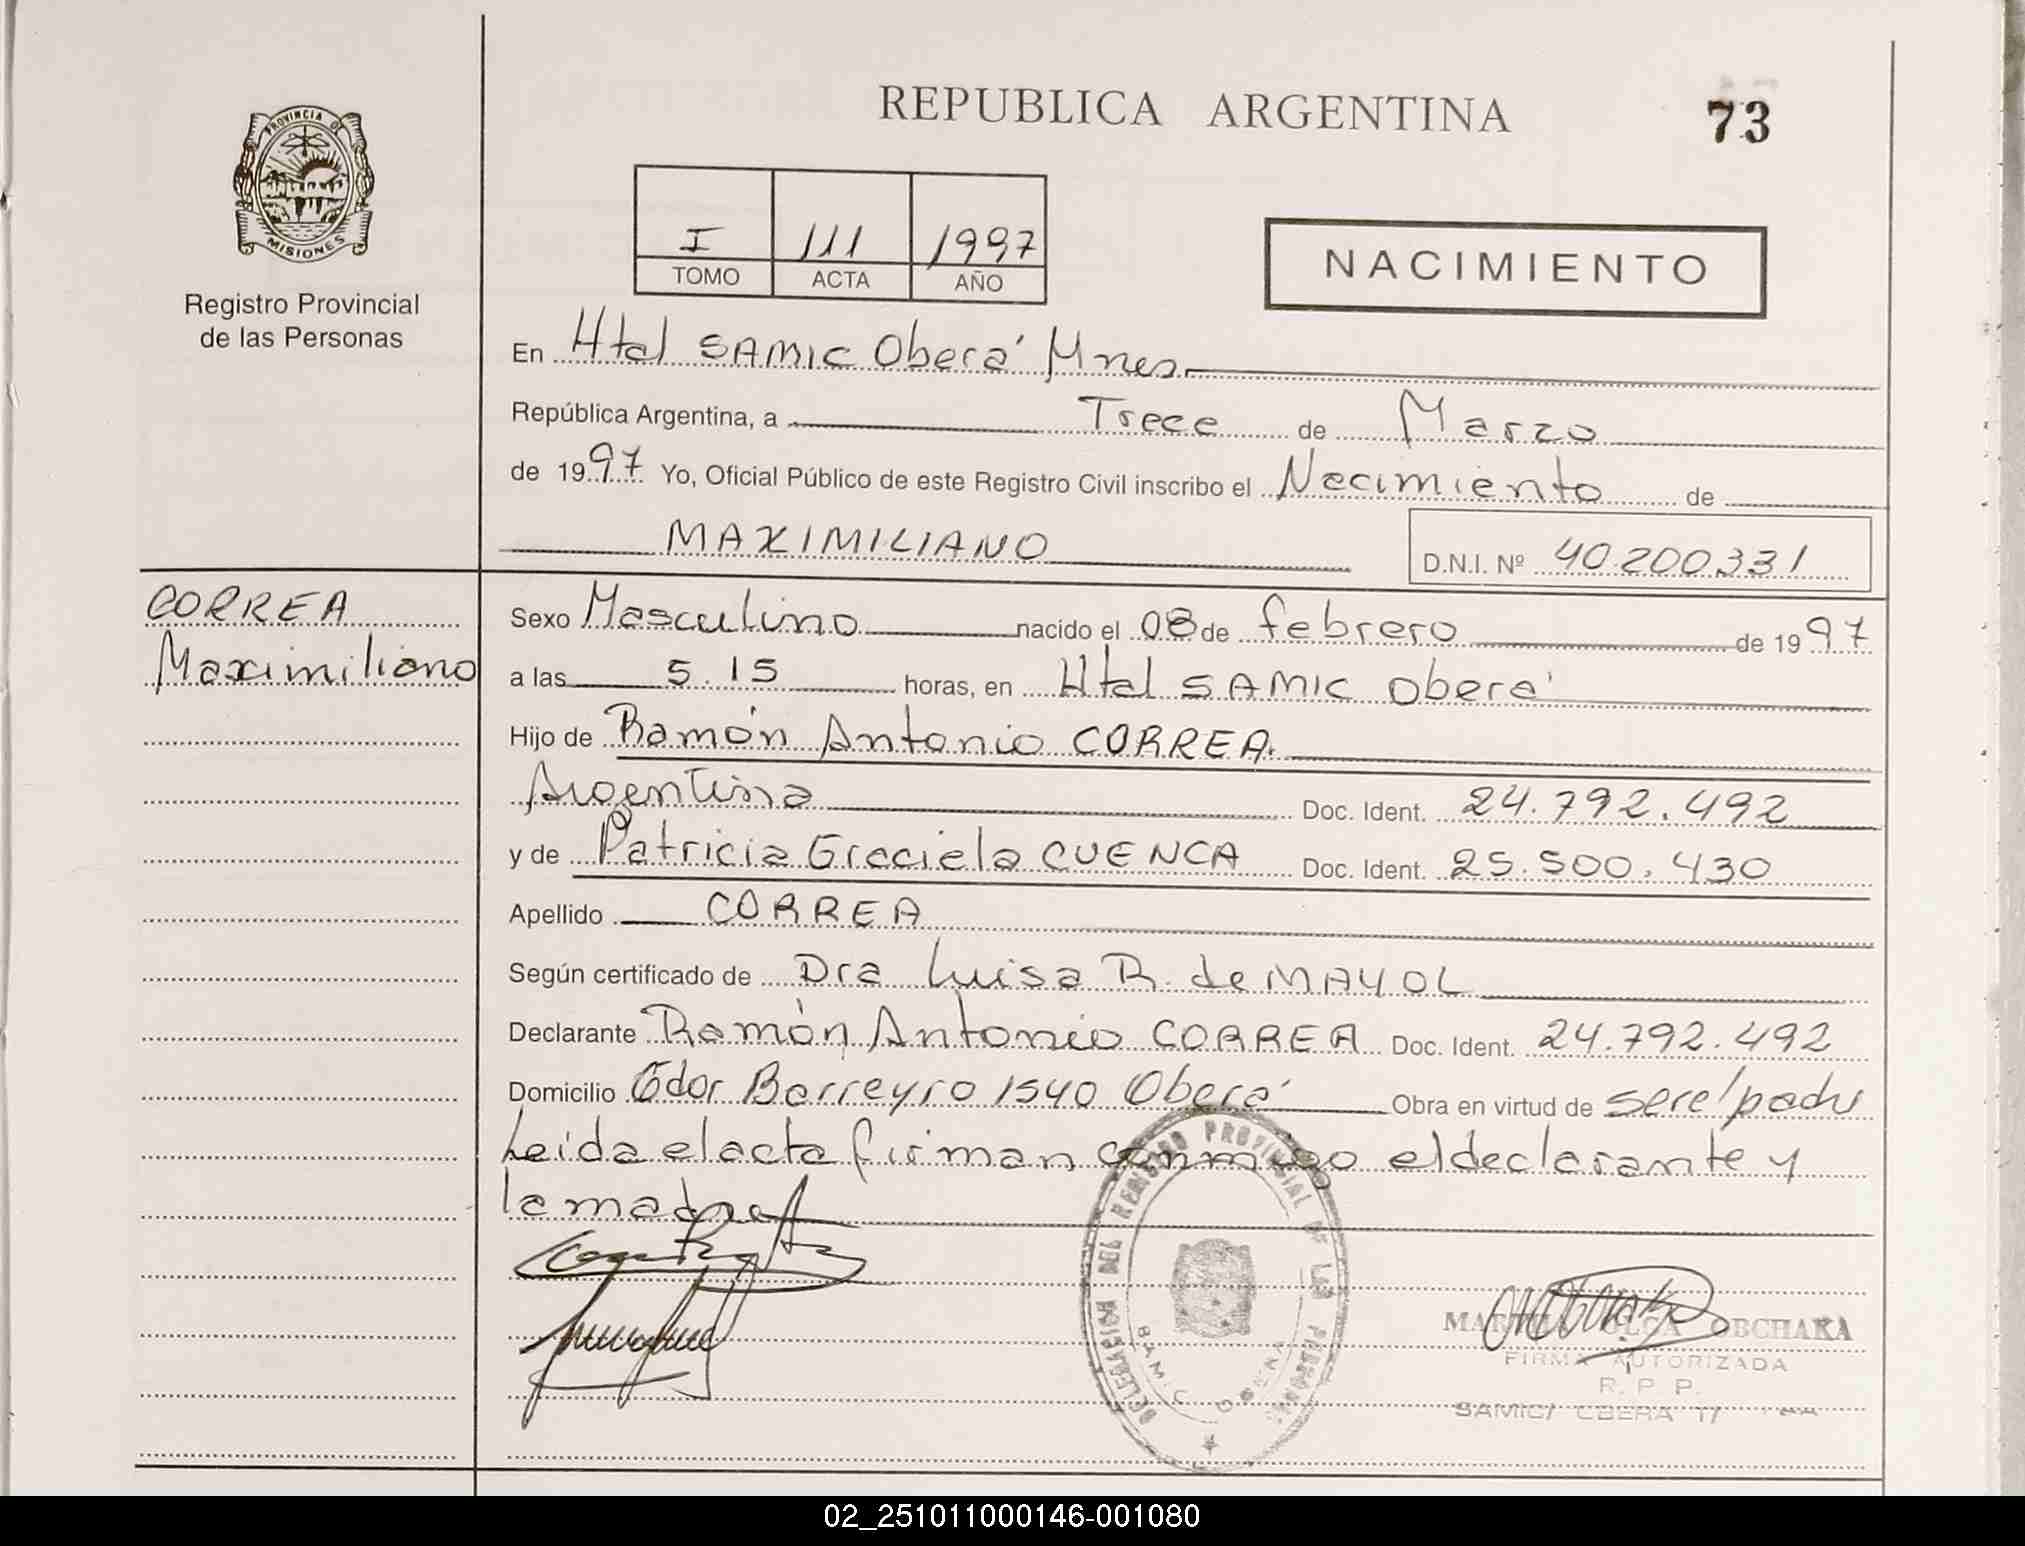 REPUBLICA ARGENTINA
73
PROVINCIA DE
MISIONES
Registro Provincial
de las Personas
I 111 1997
TOMO ACTA AÑO
NACIMIENTO
En Htal SAMIC Oberá Mnes
República Argentina, a Trece de Marzo
de 1997 Yo, Oficial Público de este Registro Civil inscribo el Nacimiento de
MAXIMILIANO
D.N.I. Nº 40.200.331
CORREA
Maximiliano
Sexo Masculino nacido el 08 de febrero de 1997
a las 5.15 horas, en Htal SAMIC Oberá
Hijo de Ramón Antonio CORREA
Argentina Doc. Ident. 24.792.492
y de Patricia Graciela CUENCA Doc. Ident. 25.500.430
Apellido CORREA
Según certificado de Dra Luisa R. de MAYOL
Declarante Ramón Antonio CORREA Doc. Ident. 24.792.492
Domicilio Gdor Barreyro 1540 Oberá Obra en virtud de ser el padre
Leida el acta firman conmigo el declarante y
la madre
DELEGACION DEL REGISTRO PROVINCIAL DE LAS PERSONAS
SAMIC OBERA
OLGA OBCHAKA
FIRMA AUTORIZADA
R. P. P.
SAMIC/ OBERA
02_251011000146-001080